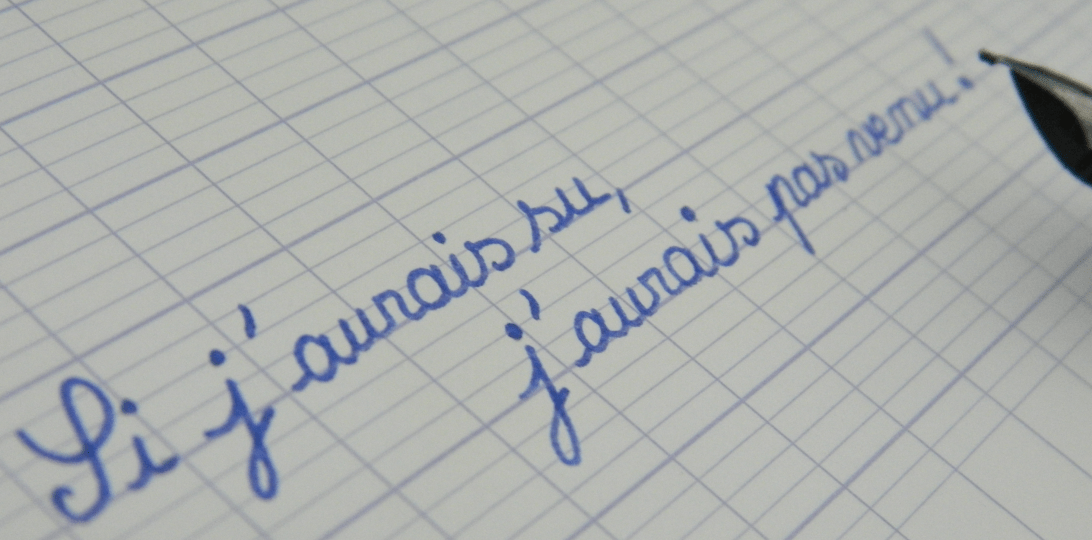 Si j'aurais su,
j'aurais pas venu!